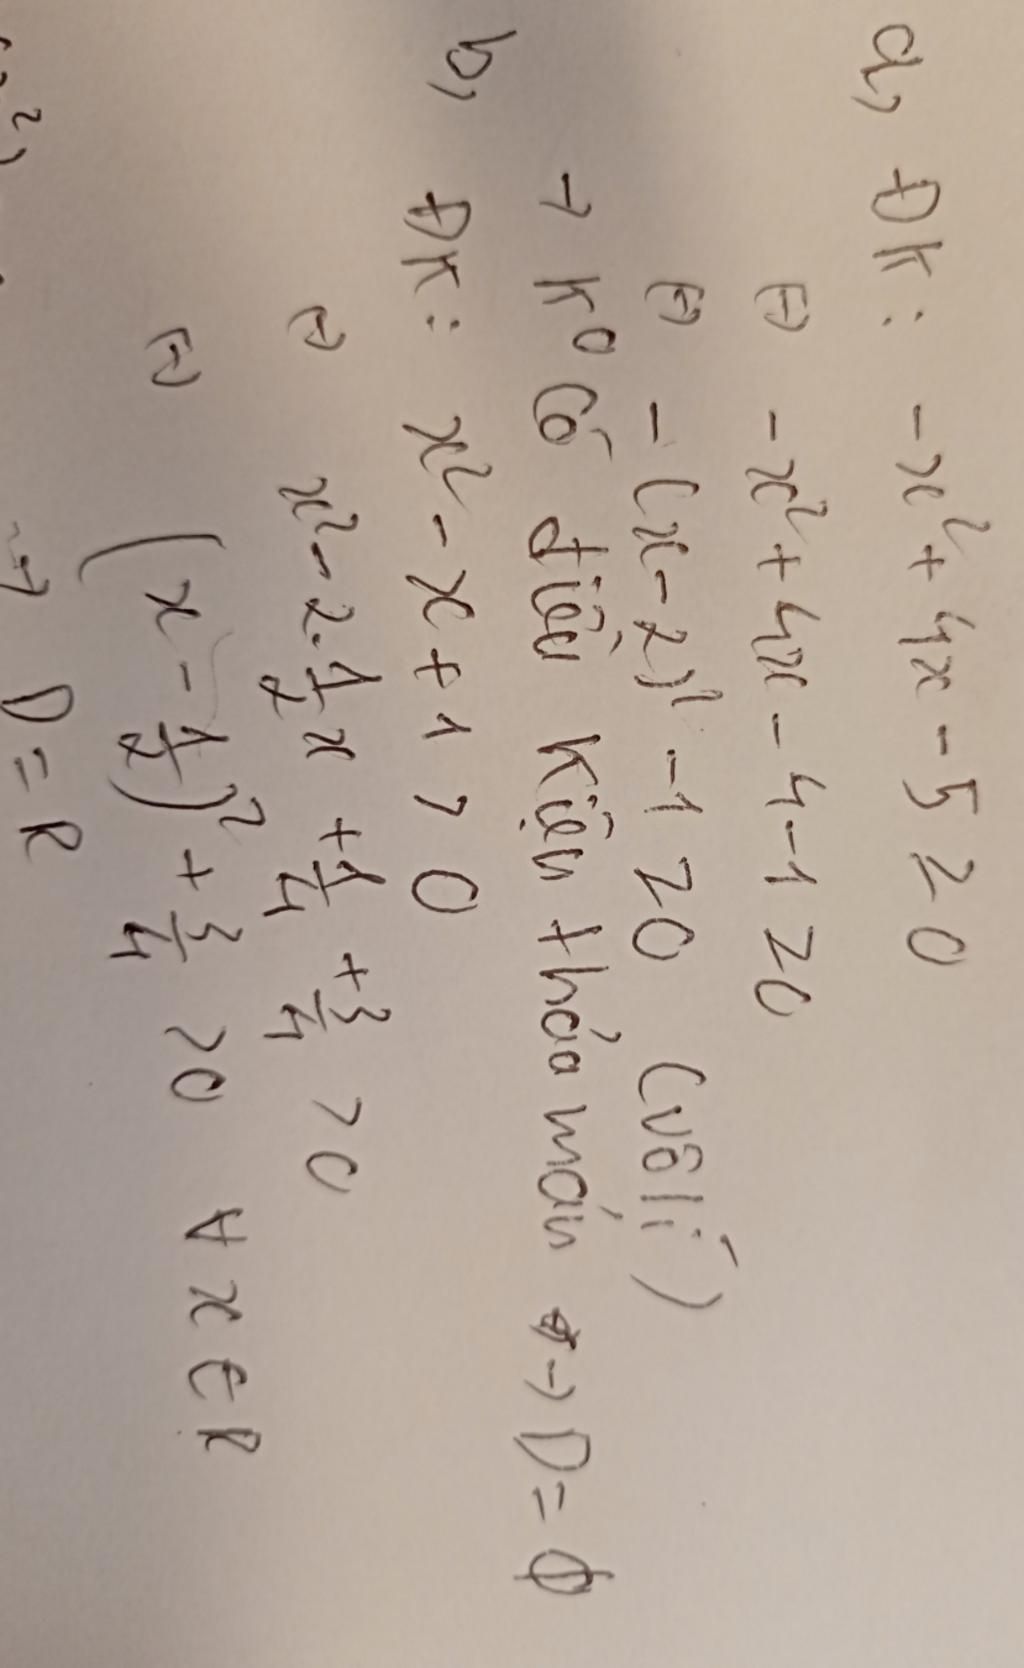 a, ĐK: -x² + 4x - 5 ≥ 0
⇔ -x² + 4x - 4 - 1 ≥ 0
⇔ - (x - 2)² - 1 ≥ 0 (vô lí)
→ K° có điều kiện thỏa mãn → D = ∅
b, ĐK: x² - x + 1 > 0
⇔ x² - 2. 1/2 x + 1/4 + 3/4 > 0
⇔ (x - 1/2)² + 3/4 > 0 ∀ x ∈ R
→ D = R